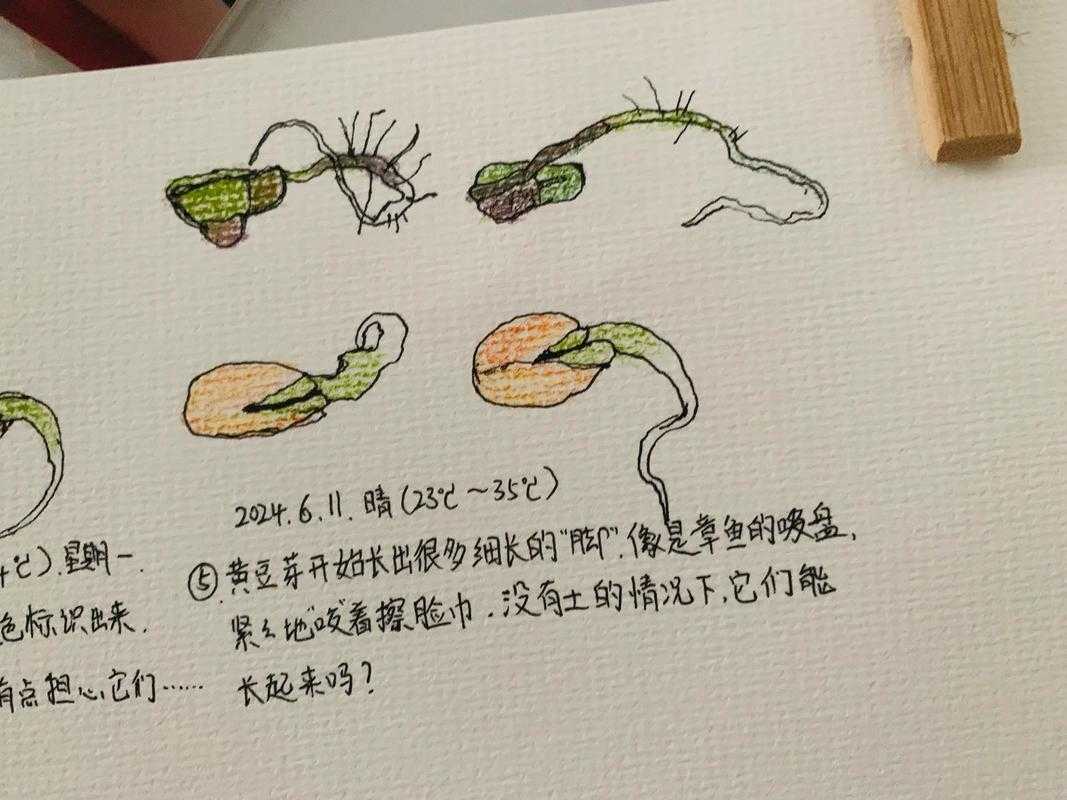 2024.6.11. 晴(23℃～35℃)
⑤黄豆芽开始长出很多细长的"脚".像是章鱼的吸盘,
紧紧地"咬"着擦脸巾.没有土的情况下,它们能
长起来吗?
4℃).星期一.
色标识出来.
有点担心它们……